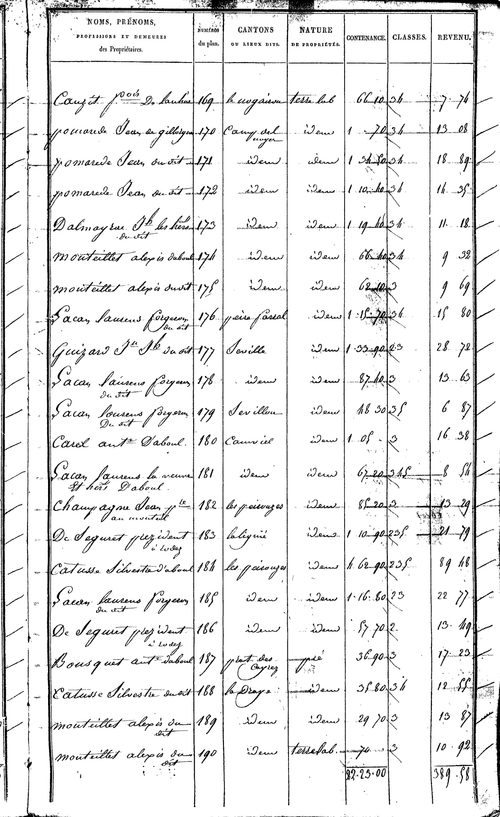 NOMS, PRÉNOMS, PROFESSIONS ET DEMEURES des Propriétaires. NUMÉROS du plan. CANTONS OU LIEUX DITS. NATURE DE PROPRIÉTÉS. CONTENANCE. CLASSES. REVENU.
169 terre lab 66 10 34 7 74
pomarede Jean de 170 Camp del idem 1 70 34 13 08
pomarede Jean du dit 171 idem idem 1 34 80 34 18 89
pomarede Jean du dit 172 idem idem 1 10 40 34 14 35
Dalmayrac Jh les hers 173 idem idem 1 19 40 34 11 18
du dit
monteillet alexis daboul 174 idem idem 66 40 34 9 32
monteillet alexis du dit 175 idem idem 62 10 3 9 69
Lacan laurens forgeron 176 idem 1 15 70 34 15 80
du dit
Guizard Jn Jh du dit 177 Seville idem 1 33 90 23 28 72
Lacan laurens forgeron 178 idem idem 87 40 3 13 63
du dit
Lacan laurens forgeron 179 Sevillou idem 48 30 35 6 87
Du dit
Carel ante Daboul 180 Cauviel idem 1 05 3 16 38
Lacan laurens la veuve 181 idem idem 67 20 345 8 54
Et hers Daboul
Champagne Jean 182 idem 85 20 2 13 29
De Seguret prezident 183 idem 1 10 90 235 21 79
à rodez
Catusse Silvestre d'aboul 184 idem 4 62 90 235 89 48
Lacan laurens forgeron 185 idem idem 1 16 80 23 22 77
du dit
De Seguret prezident 186 idem idem 57 70 2 13 49
à rodez
Bousquet ante daboul 187 prat des pré 36 90 3 17 23
Catusse Silvestre du dit 188 idem 35 80 34 12 55
monteillet alexis du 189 idem idem 29 70 3 13 87
dit
monteillet alexis du 190 idem terre lab 70 3 10 92
dit
22-23-00 389 58